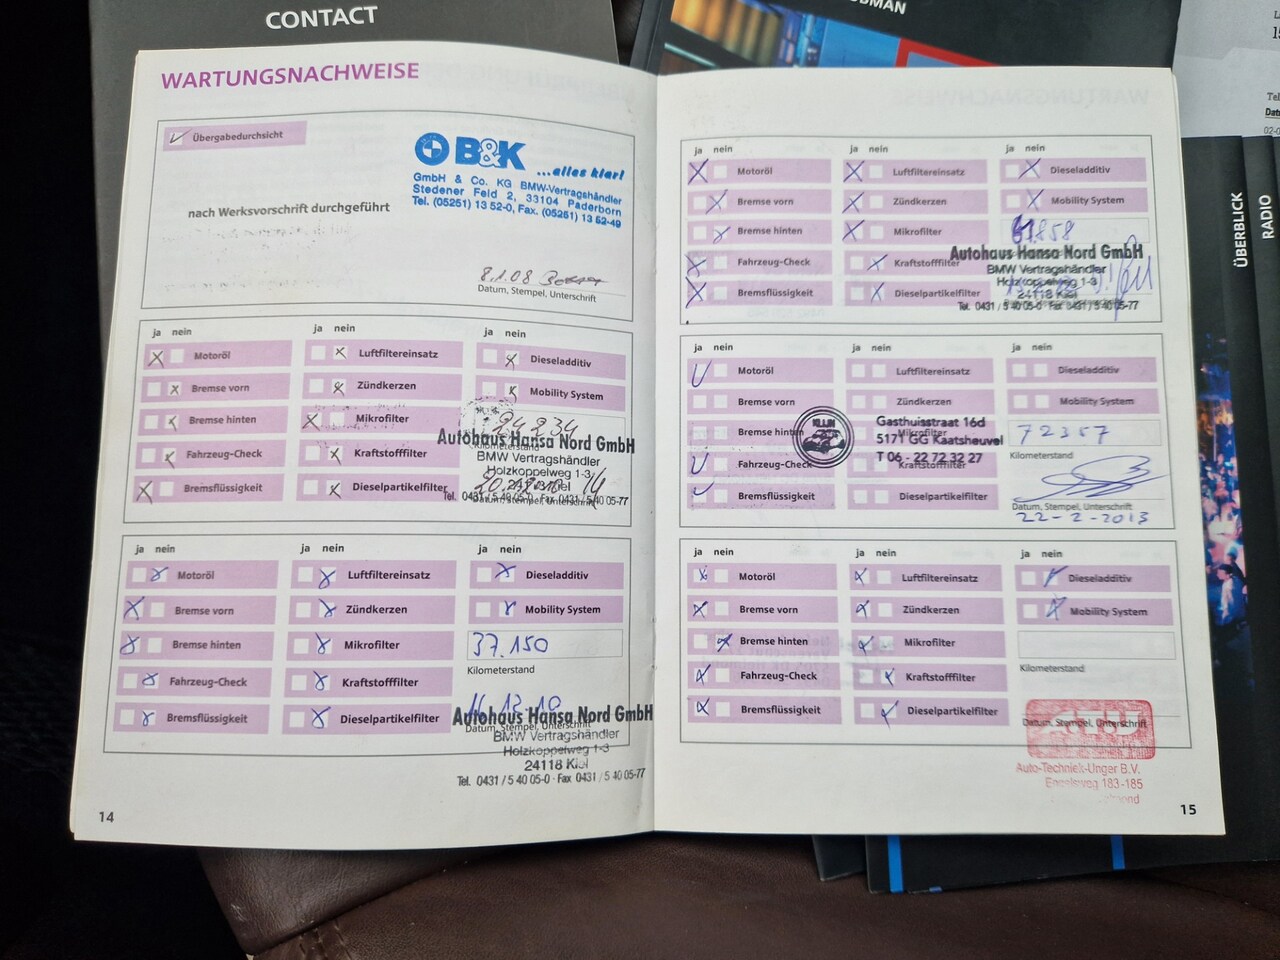 CONTACT
WARTUNGSNACHWEISE
Übergabedurchsicht
nach Werksvorschrift durchgeführt
B&K
...alles klar!
GmbH & Co. KG BMW-Vertragshändler
Stedener Feld 2, 33104 Paderborn
Tel. (05251) 13 52-0, Fax. (05251) 13 52-49
8.1.08
Datum, Stempel, Unterschrift
ja nein ja nein ja nein
Motoröl Luftfiltereinsatz Dieseladditiv
Bremse vorn Zündkerzen Mobility System
Bremse hinten Mikrofilter 24234
Kilometerstand
Fahrzeug-Check Kraftstofffilter
Bremsflüssigkeit Dieselpartikelfilter
Autohaus Hansa Nord GmbH
BMW Vertragshändler
Holzkoppelweg 1-3
24118 Kiel
Tel. 0431 / 5 40 05-0 · Fax 0431 / 5 40 05-77
Datum, Stempel, Unterschrift
ja nein ja nein ja nein
Motoröl Luftfiltereinsatz Dieseladditiv
Bremse vorn Zündkerzen Mobility System
Bremse hinten Mikrofilter 37.150
Kilometerstand
Fahrzeug-Check Kraftstofffilter
Bremsflüssigkeit Dieselpartikelfilter
12.10
Autohaus Hansa Nord GmbH
Datum, Stempel, Unterschrift
BMW Vertragshändler
Holzkoppelweg 1-3
24118 Kiel
Tel. 0431 / 5 40 05-0 · Fax 0431 / 5 40 05-77
14
ja nein ja nein ja nein
Motoröl Luftfiltereinsatz Dieseladditiv
Bremse vorn Zündkerzen Mobility System
Bremse hinten Mikrofilter
Fahrzeug-Check Kraftstofffilter
Bremsflüssigkeit Dieselpartikelfilter
Autohaus Hansa Nord GmbH
BMW Vertragshändler
Holzkoppelweg 1-3
24118 Kiel
Tel. 0431 / 5 40 05-0 · Fax 0431 / 5 40 05-77
ja nein ja nein ja nein
Motoröl Luftfiltereinsatz Dieseladditiv
Bremse vorn Zündkerzen Mobility System
Bremse hinten Mikrofilter 72357
Kilometerstand
Fahrzeug-Check Kraftstofffilter
Bremsflüssigkeit Dieselpartikelfilter
Gasthuisstraat 16d
5171 GG Kaatsheuvel
T 06 - 22 72 32 27
Datum, Stempel, Unterschrift
22-2-2013
ja nein ja nein ja nein
Motoröl Luftfiltereinsatz Dieseladditiv
Bremse vorn Zündkerzen Mobility System
Bremse hinten Mikrofilter
Kilometerstand
Fahrzeug-Check Kraftstofffilter
Bremsflüssigkeit Dieselpartikelfilter
Datum, Stempel, Unterschrift
Auto-Techniek-Unger B.V.
183-185
15
ÜBERBLICK
RADIO